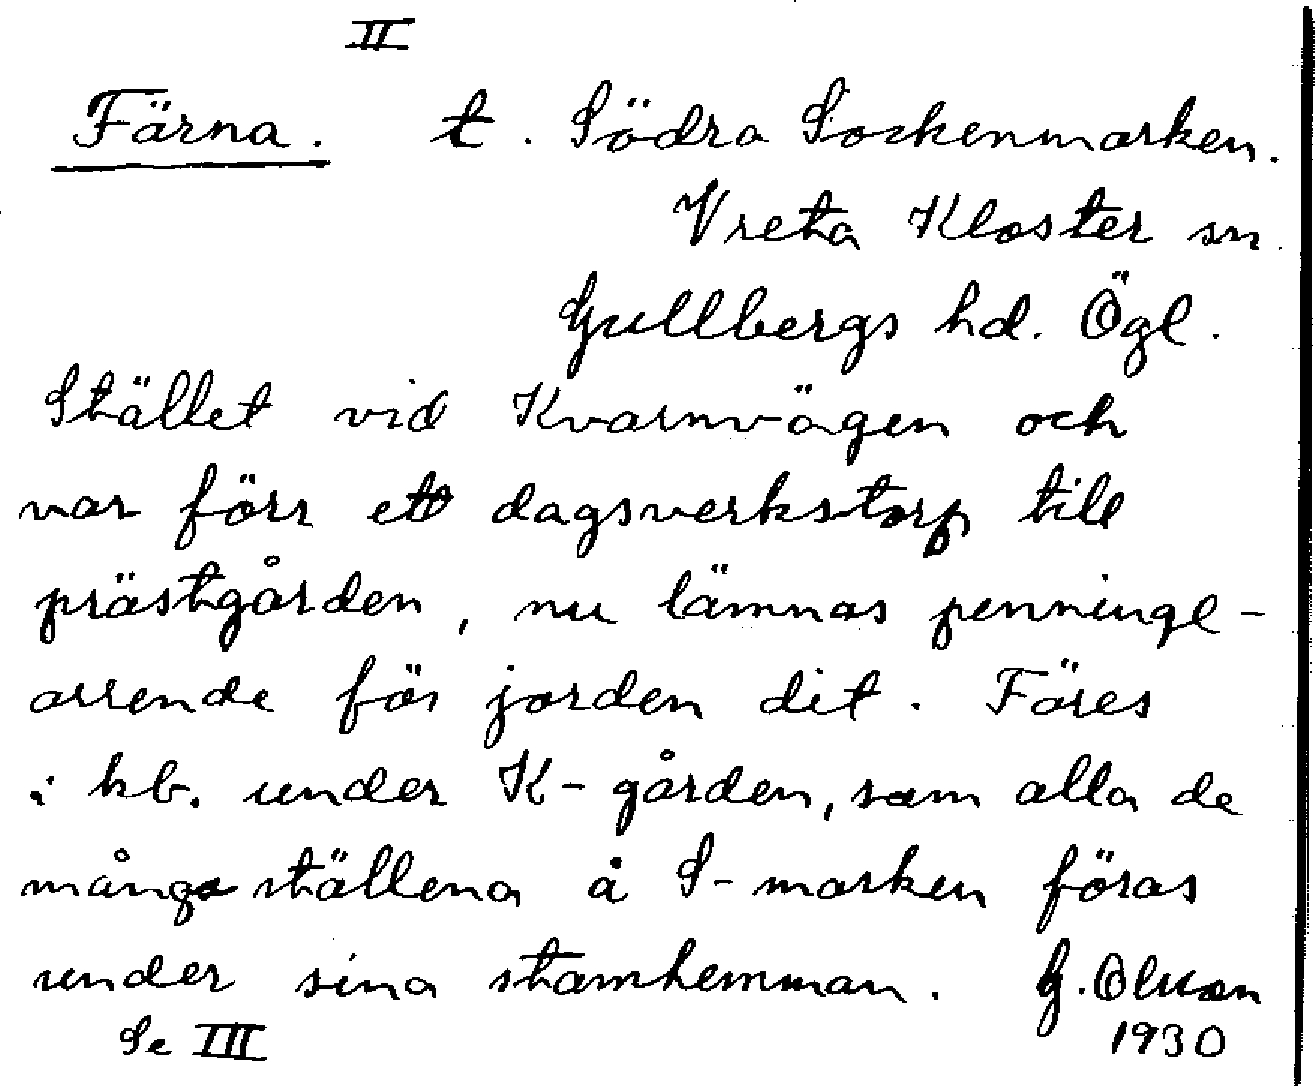 II
Färna. t. Södra Sockenmarken.
Vreta Kloster sn.
Gullbergs hd. Ögl.
Stället vid Kvarnvägen och
var förr ett dagsverkstorp till
prästgården, nu lämnas penninge-
arrende för jorden dit. Föres
i kb. under K-gården, som alla de
många ställena å S-marken föras
under sina stamhemman. G. Olsson
Se III 1930